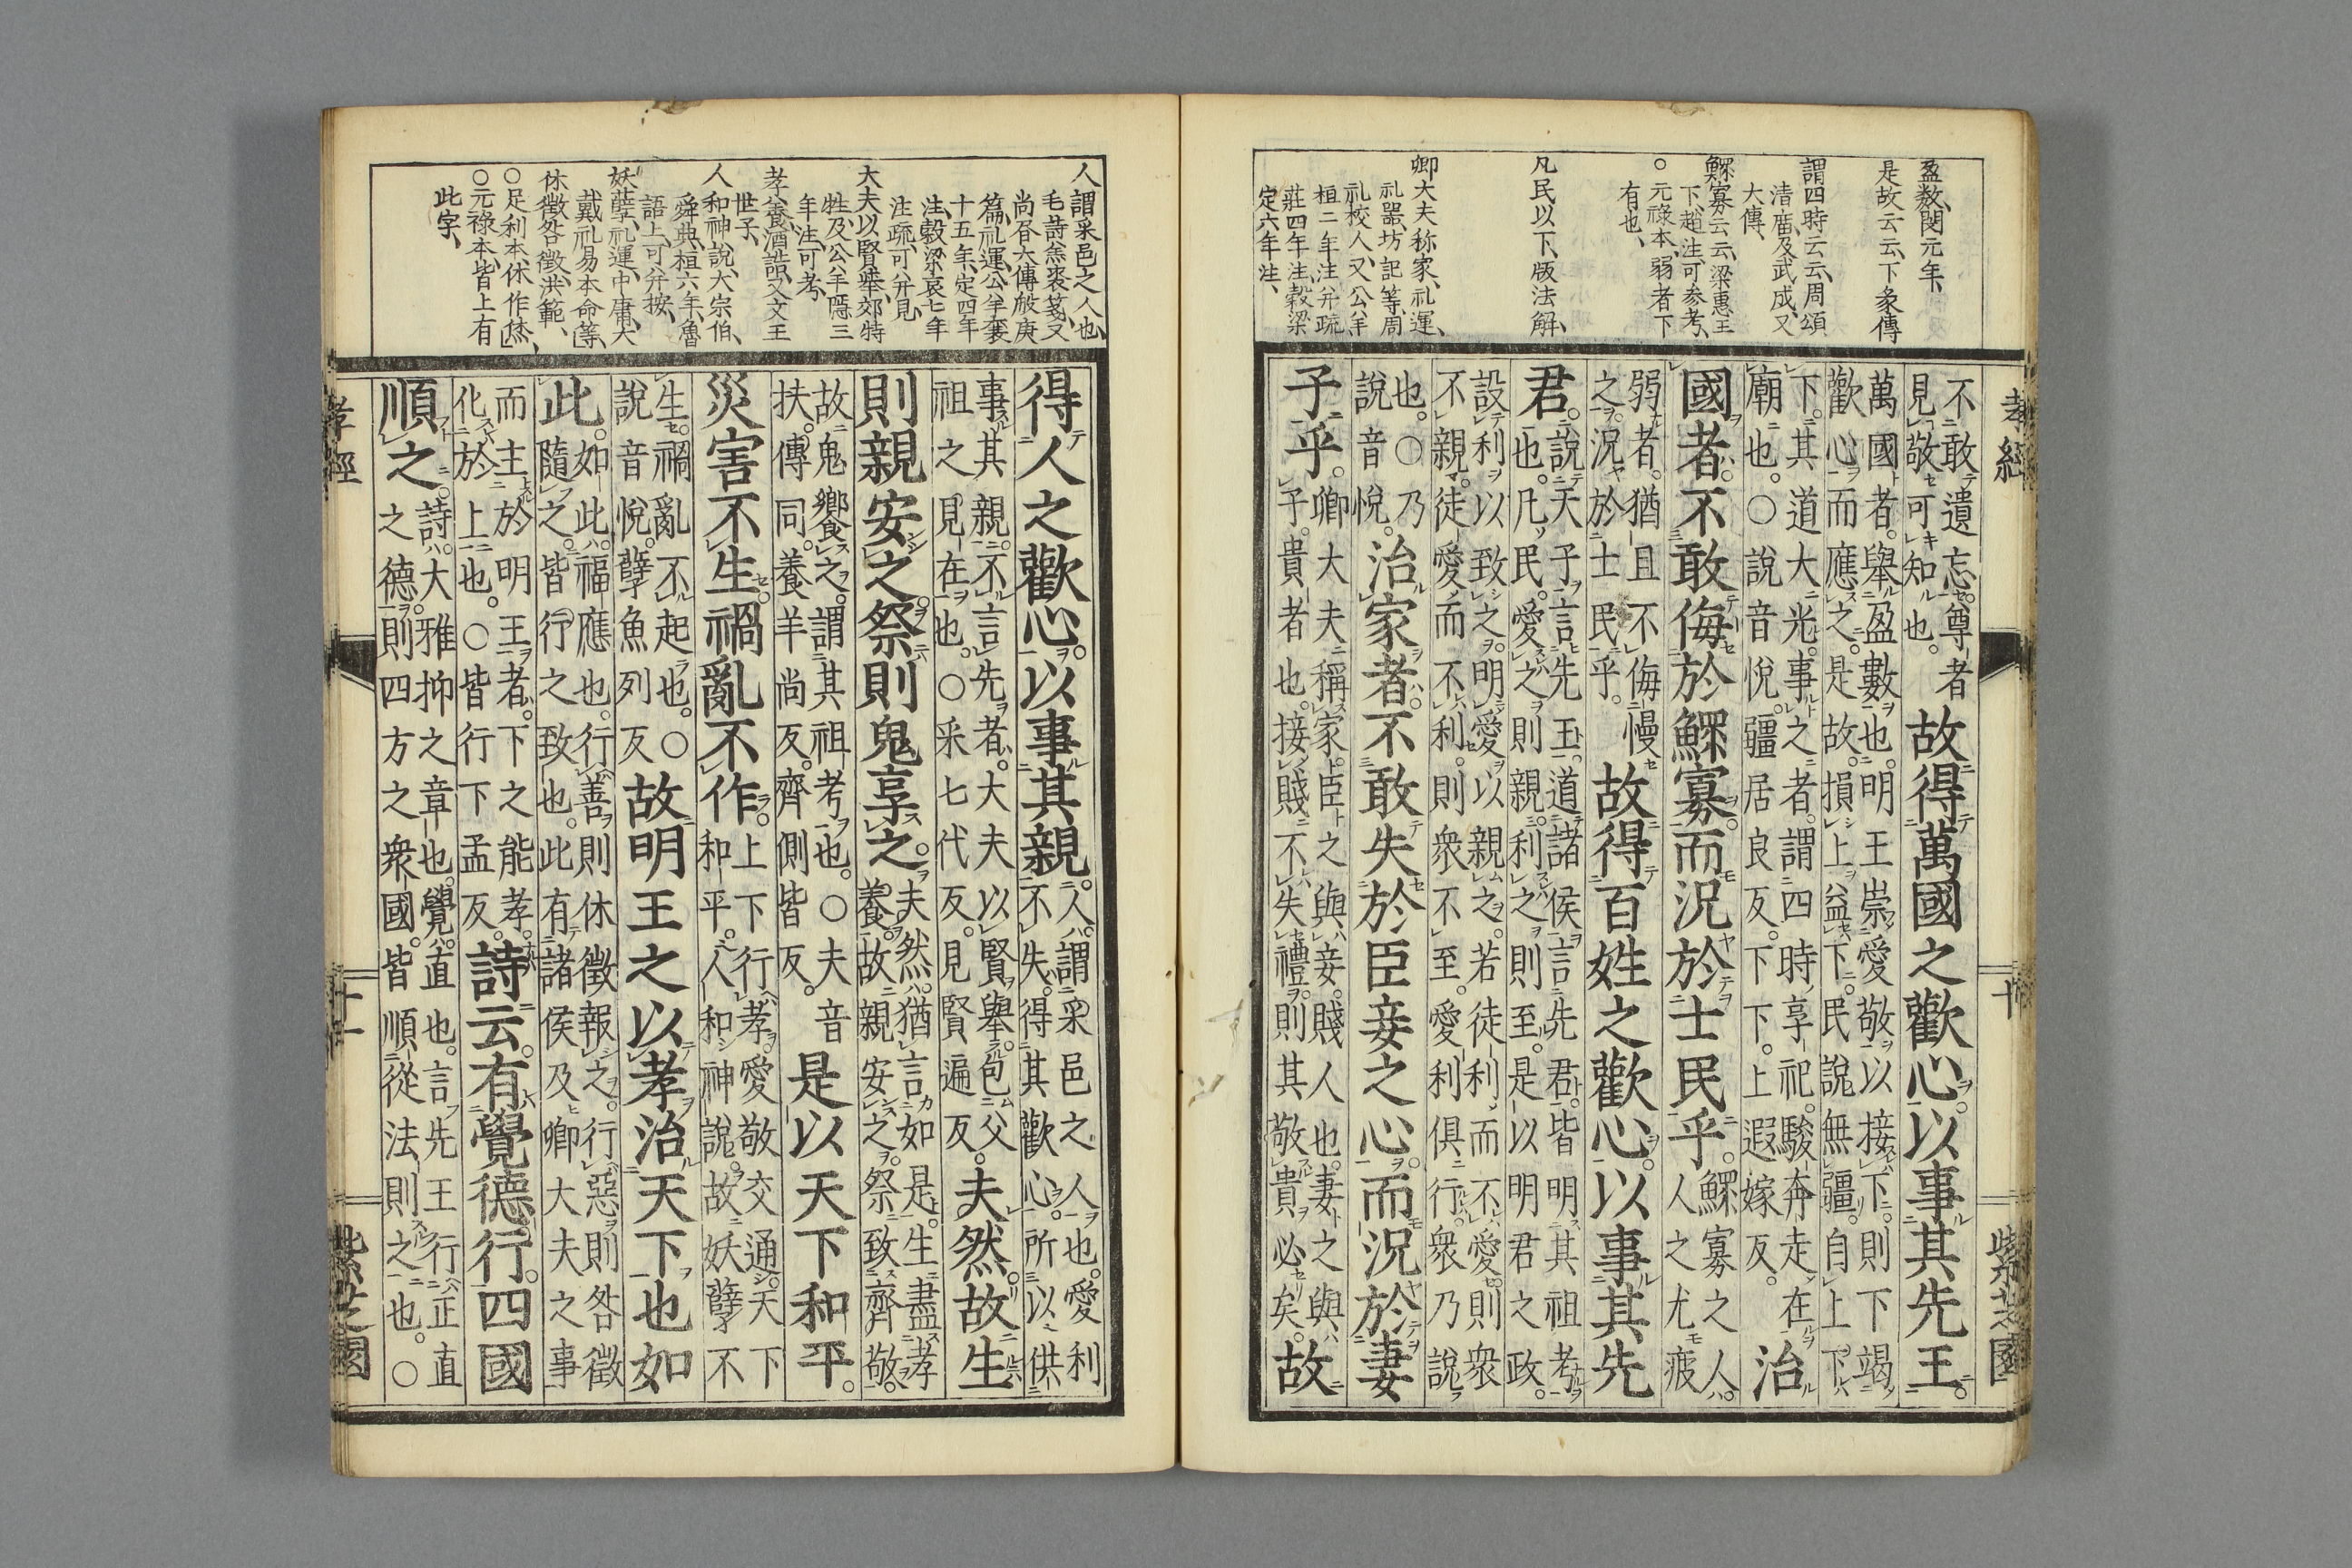 盈数、閔元年、
是故云云、下彖傳
謂四時云云、周頌
清庿及武成、又
大傳、
鰥寡云云、梁惠王
下、趙注、可参考、
○元祿本、弱者下
有也、
凡民以下、版法解、
卿大夫称家、礼運、
礼器、坊記等、周
礼校人、又公羊
桓二年注、并疏
莊四年注、穀梁
定六年注、
孝經
十
紫芝園
不敢遺忘。尊者
見敬可知也。
故得萬國之歡心。以事其先王。
萬國者。舉盈數也。明王崇愛敬以接下。則下竭
歡心而應之。是故損上益下。民説無疆。自上下
下。其道大光。事之者。謂四時享祀。駿奔走在
廟也。○説音悅。疆居良反。下下。上遐嫁反。
治
國者。不敢侮於鰥寡。而況於士民乎。
鰥寡之人。
人之尤疲
弱者。猶且不侮慢
之。況於士民乎。
故得百姓之歡心。以事其先
君。
説天子言先王。道諸侯言先君。皆明其祖考
也。凡民。愛之則親。利之則至。是以明君之政。
設利以致之。明愛以親之。若徒利而不愛。則衆
不親。徒愛而不利。則衆不至。愛利俱行。衆乃説
也。○乃
説音悅。
治家者。不敢失於臣妾之心。而況於妻
子乎。
卿大夫稱家。臣之與妾。賤人也。妻之與
子。貴者也。接賤不失禮。則其敬貴必矣。
故
人謂采邑之人也、
毛詩羔裘箋、又
尚書大傳般庚
篇、礼運、公羊襄
十五年、定四年
注、穀梁哀七年
注疏、可并見、
大夫以賢舉、郊特
牲、及公羊隱三
年注、可考、
孝養、酒誥、又文王
世子、
人和神説、大宗伯、
舜典、桓六年、魯
語上、可并按、
妖孽、礼運、中庸、大
戴礼易本命等、
休徵咎徵、洪範、
○足利本、休作烋、
○元祿本、皆上有
此字、
得人之歡心。以事其親。
人。謂采邑之人也。愛利
不失。得其歡心。所以供
事其親。不言先者。大夫以賢舉。包父
祖之見在也。○采七代反。見賢遍反。
夫然。故生
則親安之。祭則鬼享之。
夫然。猶言如是。生盡孝
養。故親安之。祭致齊敬。
故鬼饗之。謂其祖考也。○夫音
扶。傳同。養羊尚反。齊側皆反。
是以天下和平。
災害不生。禍亂不作。
上下行孝。愛敬交通。天下
和平。人和神説。故妖孽不
生。禍亂不起也。○
説音悅。孽魚列反
故明王之以孝治天下也如
此。
如此。福應也。行善則休徵報之。行惡則咎徵
隨之。皆行之致也。此有諸侯及卿大夫之事
而主於明王者。下之能孝。
化於上也。○皆行下孟反。
詩云。有覺德行。四國
順之。
詩。大雅抑之章也。覺。直也。言先王行正直
之德。則四方之衆國。皆順從法則之也。○
孝經
十一
紫芝園